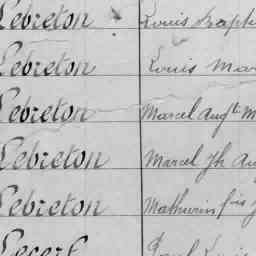 Lebreton Louis Bapt
Lebreton Louis Mar
Lebreton Marcel Augte M
Lebreton Marcel Jh Au
Lebreton Mathurin fis J
Lecerf Paul Louis